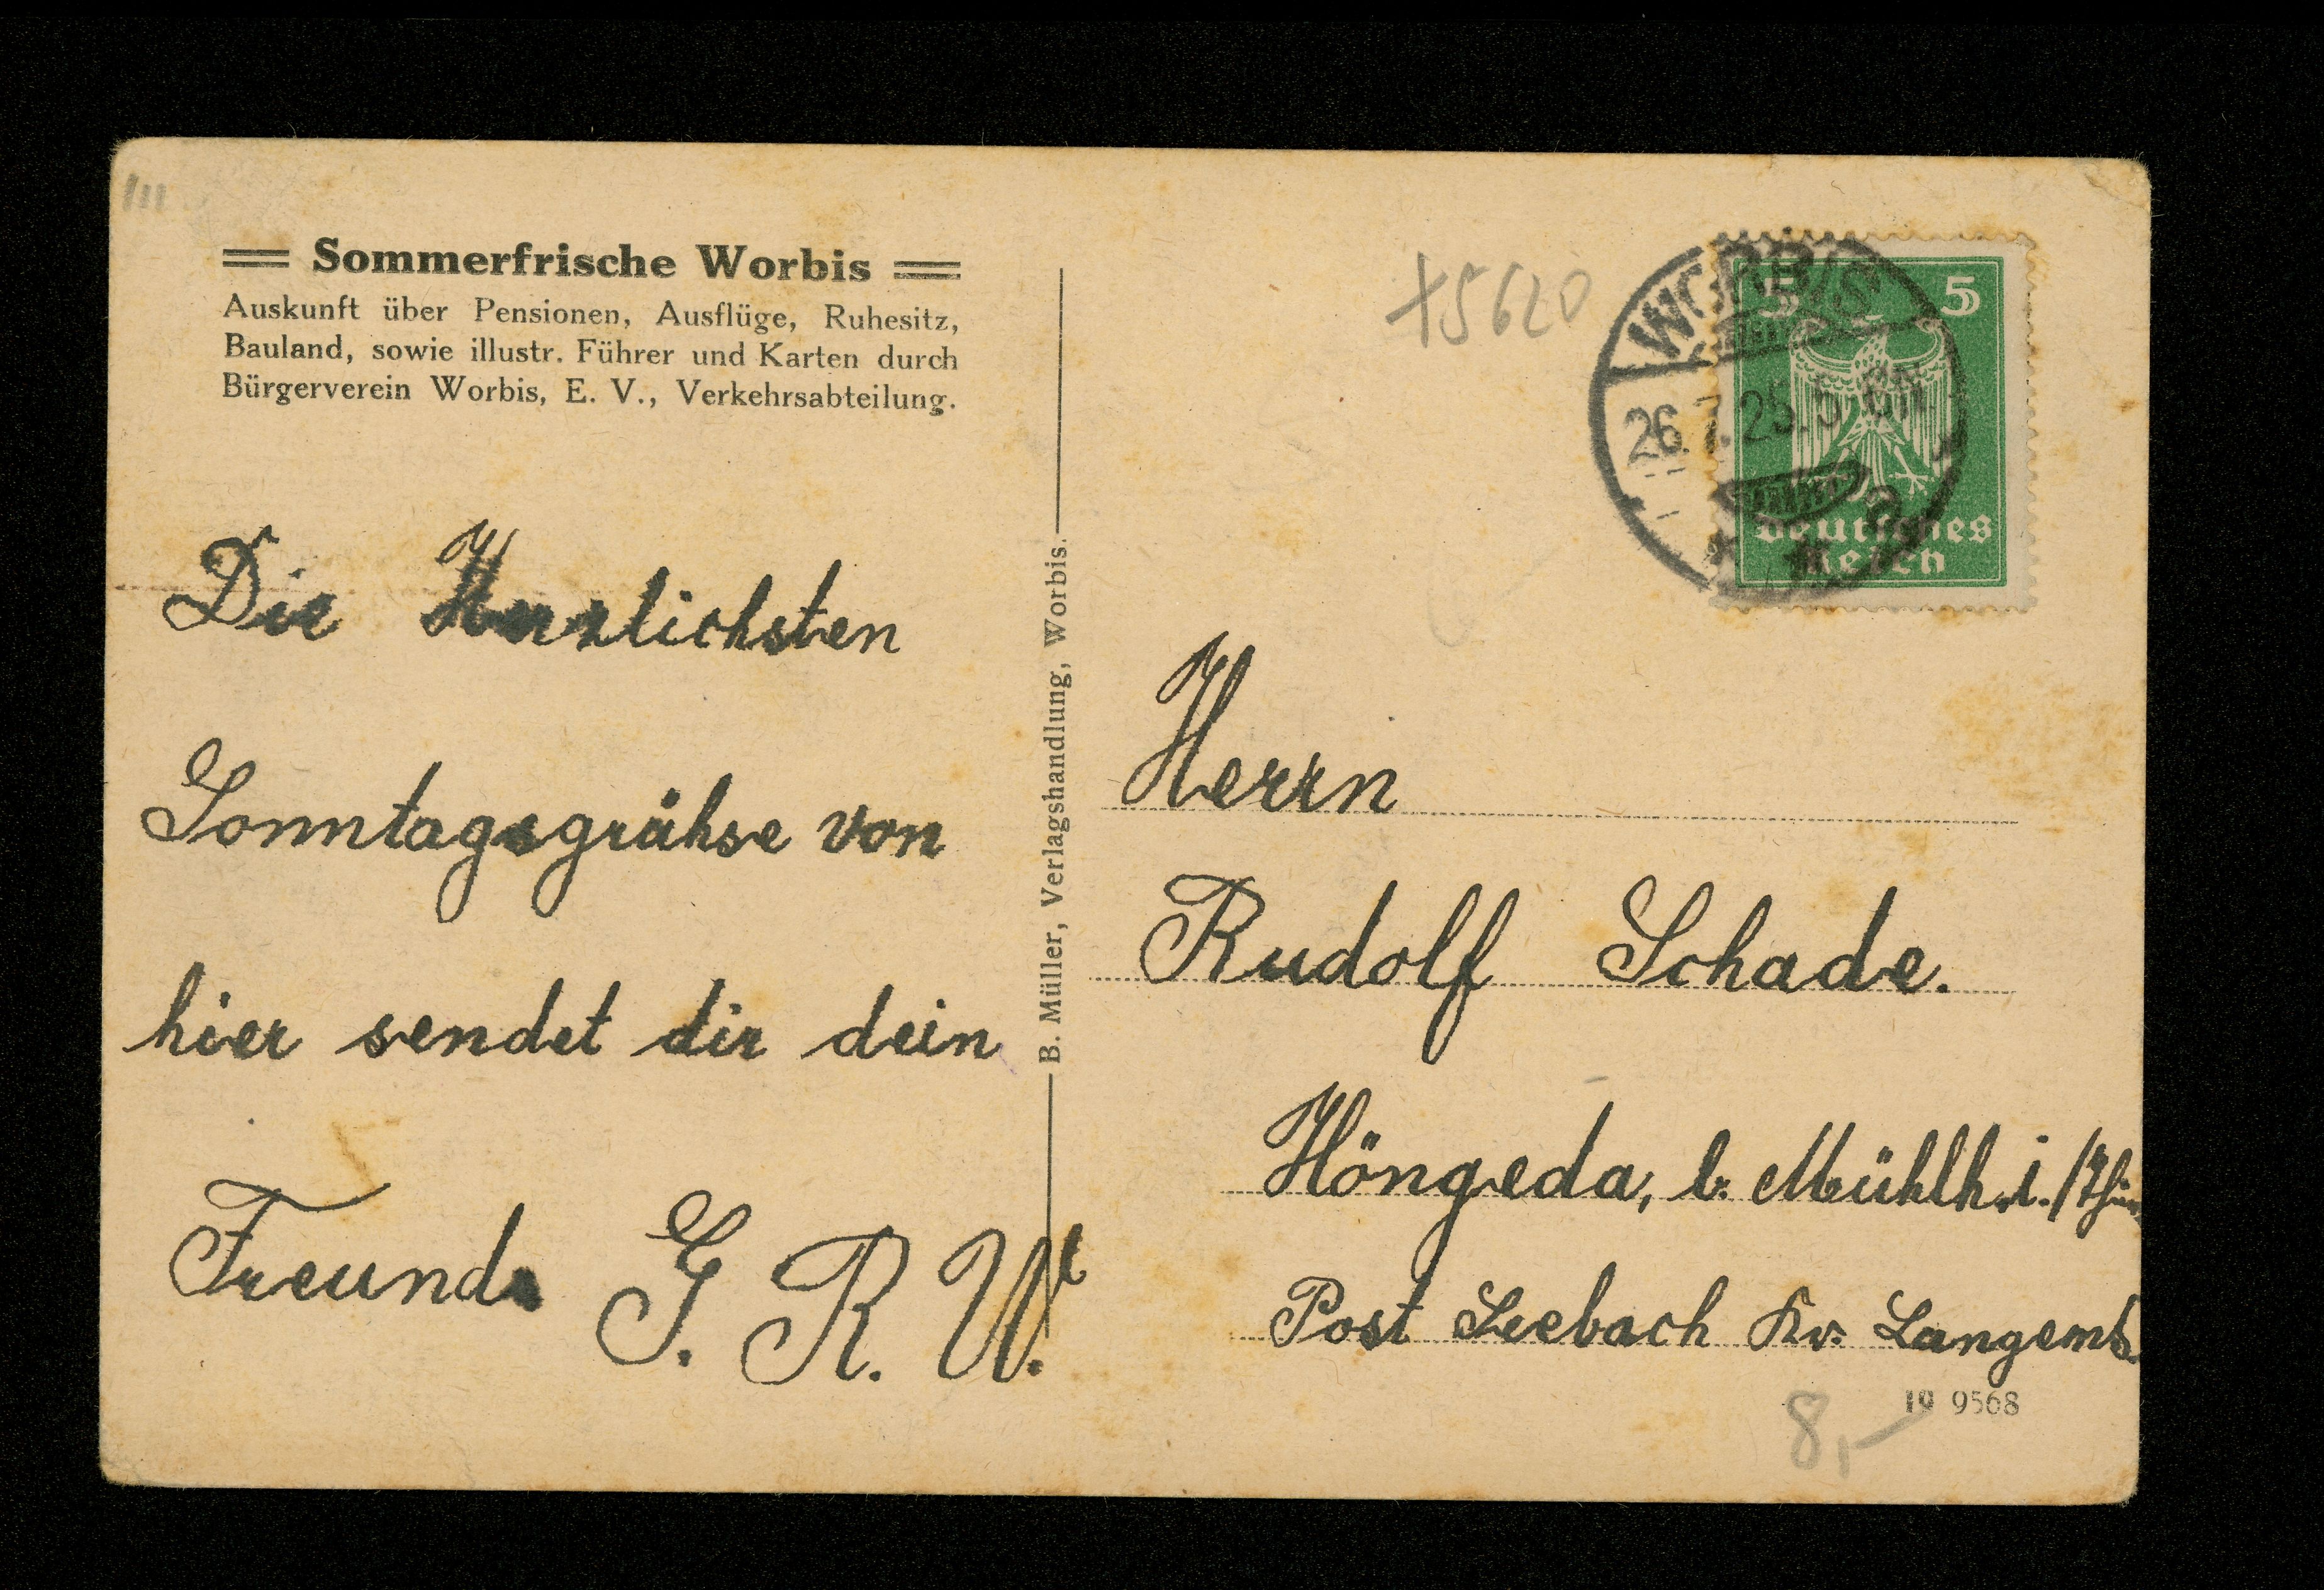 Sommerfrische Worbis
Auskunft über Pensionen, Ausflüge, Ruhesitz,
Bauland, sowie illustr. Führer und Karten durch
Bürgerverein Worbis, E. V., Verkehrsabteilung.
Die Herzlichsten
Sonntagsgrühse von
hier sendet dir dein
Freund G. R. W.
B. Müller, Verlagshandlung, Worbis.
X5620
WORBIS
26.7.25.5-6N
5 5
Deutsches
Reich
Herrn
Rudolf Schade.
Höngeda, b. Mühlh. i./Thür
Post Seebach Kr. Langens.
19 9568
8,-